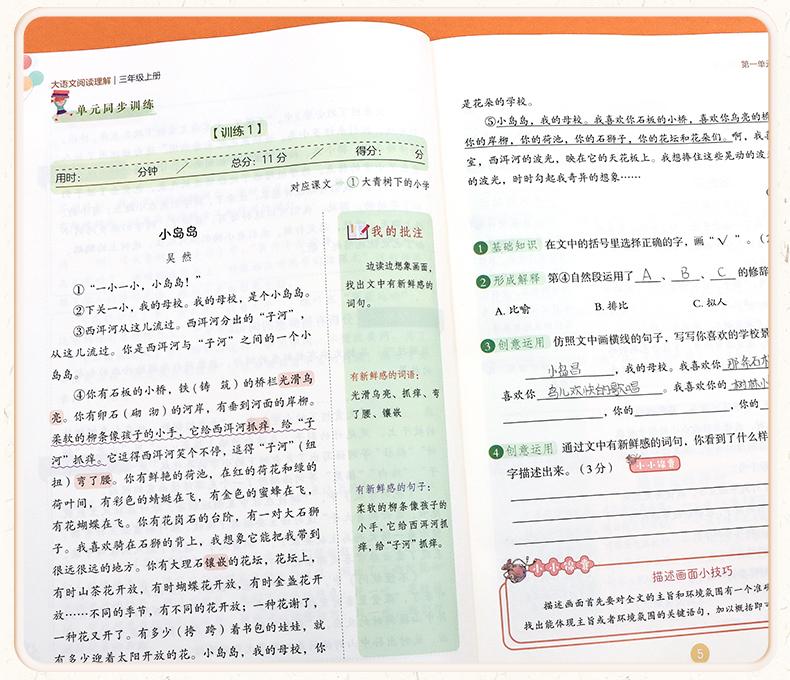 大语文阅读理解｜三年级上册
单元同步训练
【训练1】
用时： 分钟 ／ 总分：11分 ／ 得分： 分
对应课文 ① 大青树下的小学
小岛岛
吴 然
①“一小一小，小岛岛！”
②下关一小，我的母校。我的母校，是个小岛岛。
③西洱河从这儿流过。西洱河分出的“子河”，
从这儿流过。你是西洱河与“子河”之间的一个小
岛岛。
④你有石板的小桥，铁（铸 筑）的桥栏光滑乌
亮。你有卵石（砌 沏）的河岸，有垂到河面的岸柳。
柔软的柳条像孩子的小手，它给西洱河抓痒，给“子
河”抓痒。它逗得西洱河笑个不停，逗得“子河”（纽
扭）弯了腰。你有鲜艳的荷池，在红的荷花和绿的
荷叶间，有彩色的蜻蜓在飞，有金色的蜜蜂在飞，
有花蝴蝶在飞。你有花岗石的台阶，有一对大石狮
子。我喜欢骑在石狮的背上，我想象它能把我带到
很远很远的地方。你有大理石镶嵌的花坛，花坛上，
有时山茶花开放，有时蝴蝶花开放，有时金盏花开
放……不同的季节，有不同的花开放；一种花谢了，
一种花又开了。有多少（挎 跨）着书包的娃娃，就
有多少迎着太阳开放的花。小岛岛，我的母校，你
我的批注
边读边想象画面，
找出文中有新鲜感的
词句。
有新鲜感的词语：
光滑乌亮、抓痒、弯
了腰、镶嵌
有新鲜感的句子：
柔软的柳条像孩子的
小手，它给西洱河抓
痒，给“子河”抓痒。
第一单元
是花朵的学校。
⑤小岛岛，我的母校。我喜欢你石板的小桥，喜欢你乌亮的桥
你的岸柳，你的荷池，你的石狮子，你的花坛和花朵们。啊，我
室，西洱河的波光，映在它的天花板上。我想捧住这些晃动的波
的波光，时时勾起我奇异的想象……
1 基础知识 在文中的括号里选择正确的字，画“√”。（2
2 形成解释 第④自然段运用了 A 、 B 、 C 的修辞
A. 比喻 B. 排比 C. 拟人
3 创意运用 仿照文中画横线的句子，写写你喜欢的学校景
，我的母校。我喜欢你 那条石木
喜欢你 鸟儿欢快的歌唱 。我喜欢你的 树荫小
，你的 ，你的
4 创意运用 通过文中有新鲜感的词句，你看到了什么样
字描述出来。（3分） 小小锦囊
小小锦囊
描述画面小技巧
描述画面首先要对全文的主旨和环境氛围有一个准确
找出能体现主旨或者环境氛围的关键语句，加以概括即可
5